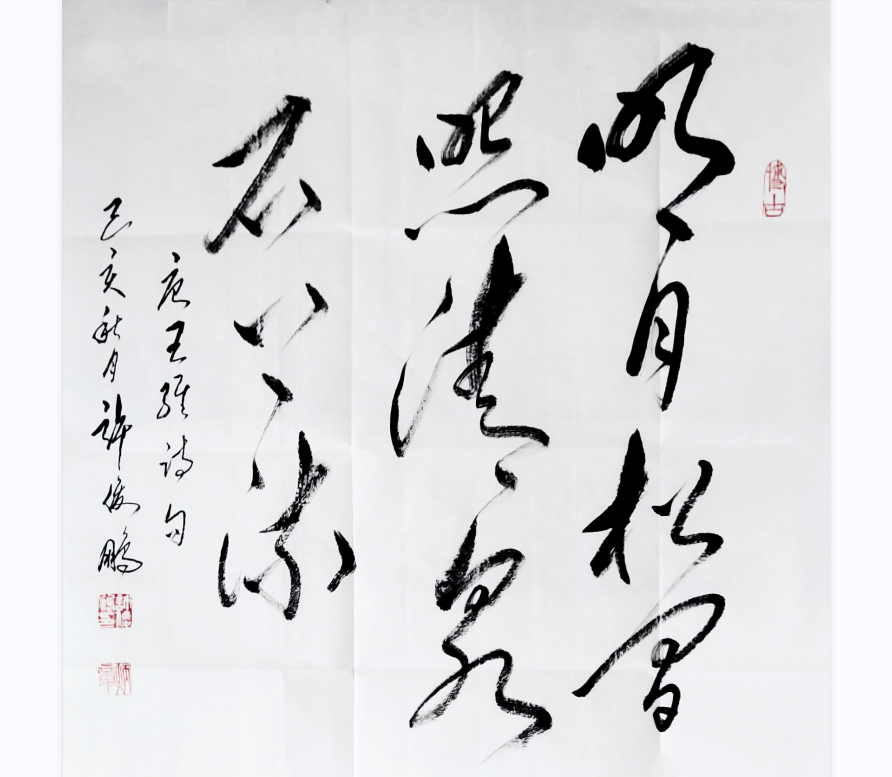 博古
明月松间
照清泉
石上流
唐王维诗句
己亥秋月许俊鹏